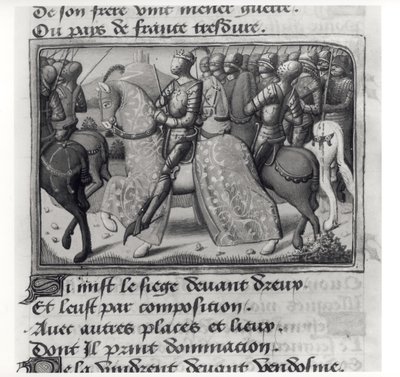 De son frere vint mener guerre.
Ou pays de france tresdure.
Si mist le siege deuant dreux
Et leust par composition.
Auec autres places et lieux
Dont Il print dominacion.
De la vindrent deuant vendosme.